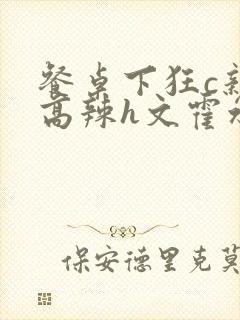 餐桌下狂c
高辣h文霍
保安德里克莫